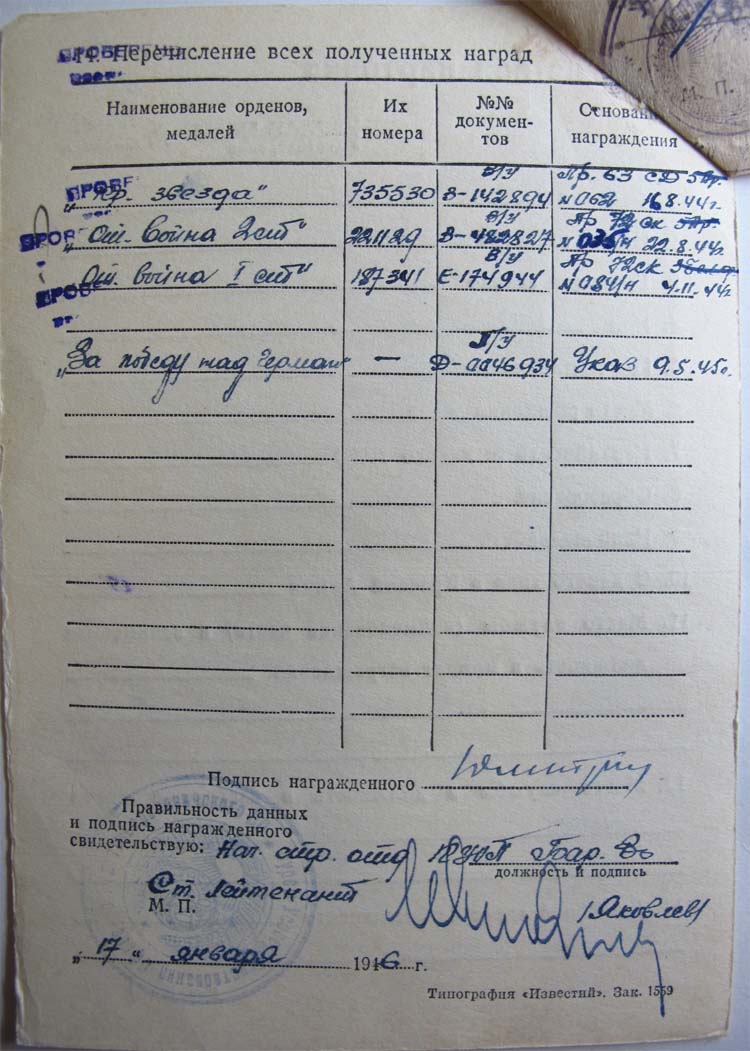 14. Перечисление всех полученных наград
М. П.
Наименование орденов, медалей
Их номера
№№ документов
награждения
"Кр. звезда" 735530 В/У В-142894 Пр. 63 СД №062 16.8.44г.
"От. война 2 ст" 221129 В/У В-482827 Пр 72 СК 22.8.44г.
"От. война I ст" 187341 В/У Е-174944 Пр 72 СК №084/Н 4.11.44г.
"За победу над Герман" — Указ 9.5.45г.
Подпись награжденного
Правильность данных
и подпись награжденного
свидетельствую: Нач. стр. отд
должность и подпись
Ст. Лейтенант
М. П. /Яковлев/
"17" января 1946 г.
Типография «Известий». Зак. 1559